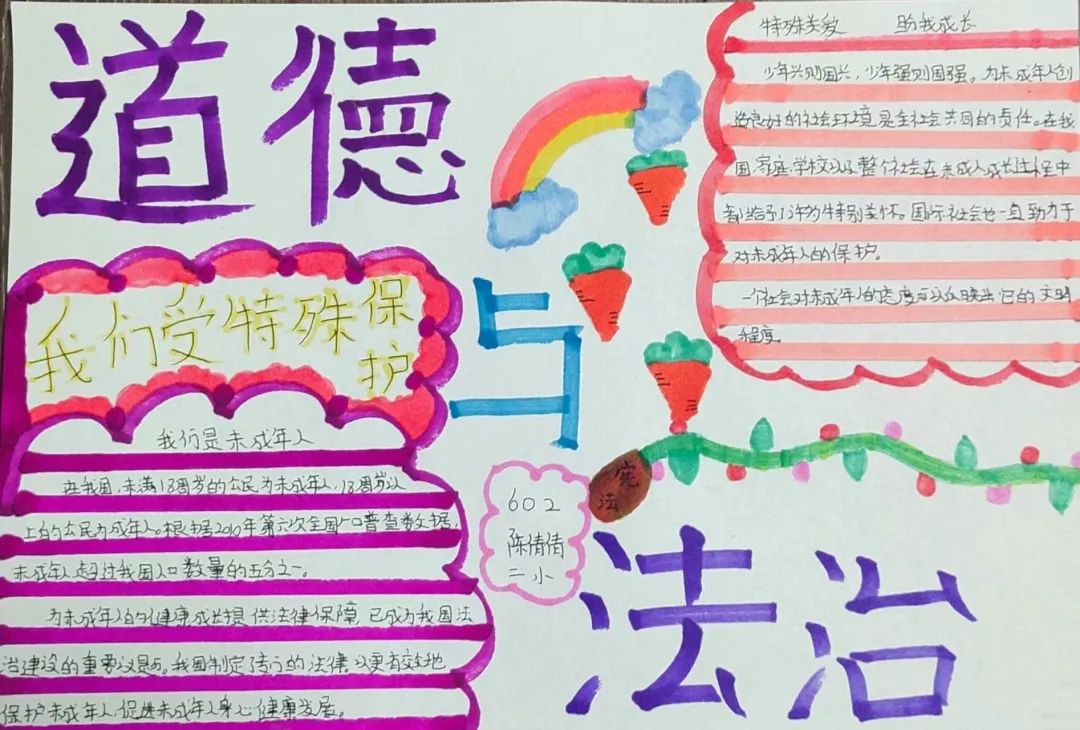 道德
与
法治
我们受特殊保护
我们是未成年人
在我国,未满18周岁的公民为未成年人,18周岁以
上的公民为成年人。根据2010年第六次全国人口普查数据,
未成年人超过我国人口数量的五分之一。
为未成年人的健康成长提供法律保障,已成为我国法
治建设的重要议题。我国制定专门的法律,以更有效地
保护未成年人,促进未成年人身心健康发展。
特殊关爱 助我成长
少年兴则国兴,少年强则国强。为未成年人创
造良好的社会环境是全社会共同的责任。在我
国,家庭、学校以及整个社会在未成人成长过程中
都给予了许多特别关怀。国际社会也一直致力于
对未成年人的保护。
一个社会对未成年人的态度可以反映出它的文明
程度
宪法
602
陈倩倩
二小